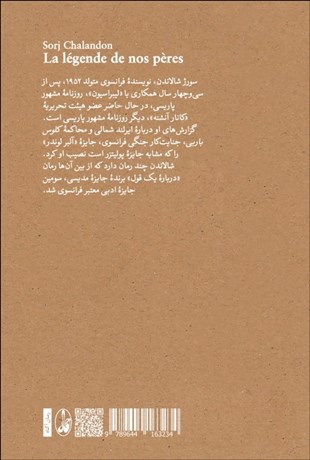 Sorj Chalandon
La légende de nos pères
سورژ شالاندن، نویسندهٔ فرانسوی متولد ۱۹۵۲، پس از
سی‌وچهار سال همکاری با «لیبراسیون»، روزنامهٔ مشهور
پاریسی، در حال حاضر عضو هیئت تحریریهٔ
«کانار آنشنه»، دیگر روزنامهٔ مشهور پاریسی است.
گزارش‌های او دربارهٔ ایرلند شمالی و محاکمهٔ کلوس
باربی، جنایت‌کار جنگی فرانسوی، جایزهٔ «آلبر لوندر»
را که مشابه جایزهٔ پولیتزر است نصیب او کرد.
شالاندن چند رمان دارد که از بین آن‌ها رمان
«دربارهٔ یک قول» برندهٔ جایزهٔ مدیسی، سومین
جایزهٔ ادبی معتبر فرانسوی شد.
9 789644 163234